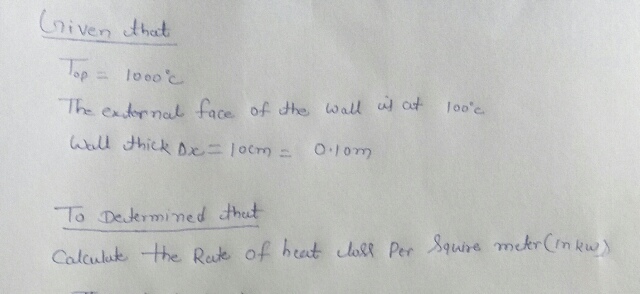 Given that
Top = 1000°c
The external face of the wall is at 100°c
Wall thick Δx = 10cm = 0.10m
To Determined that
Calculate the Rate of heat loss Per Squire meter (in kw)